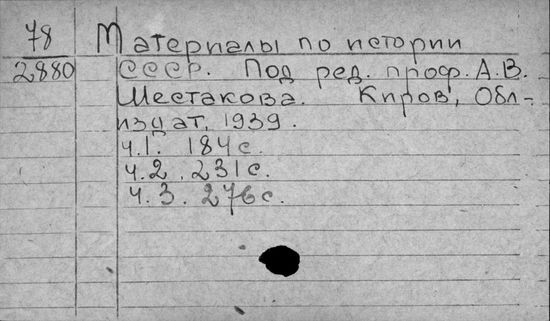 78 Материалы по истории
2880 СССР. Под ред. проф. А.В.
Шестакова. Киров, Обл-
издат, 1939.
ч.1. 184с.
ч.2. 231с.
ч.3. 276с.